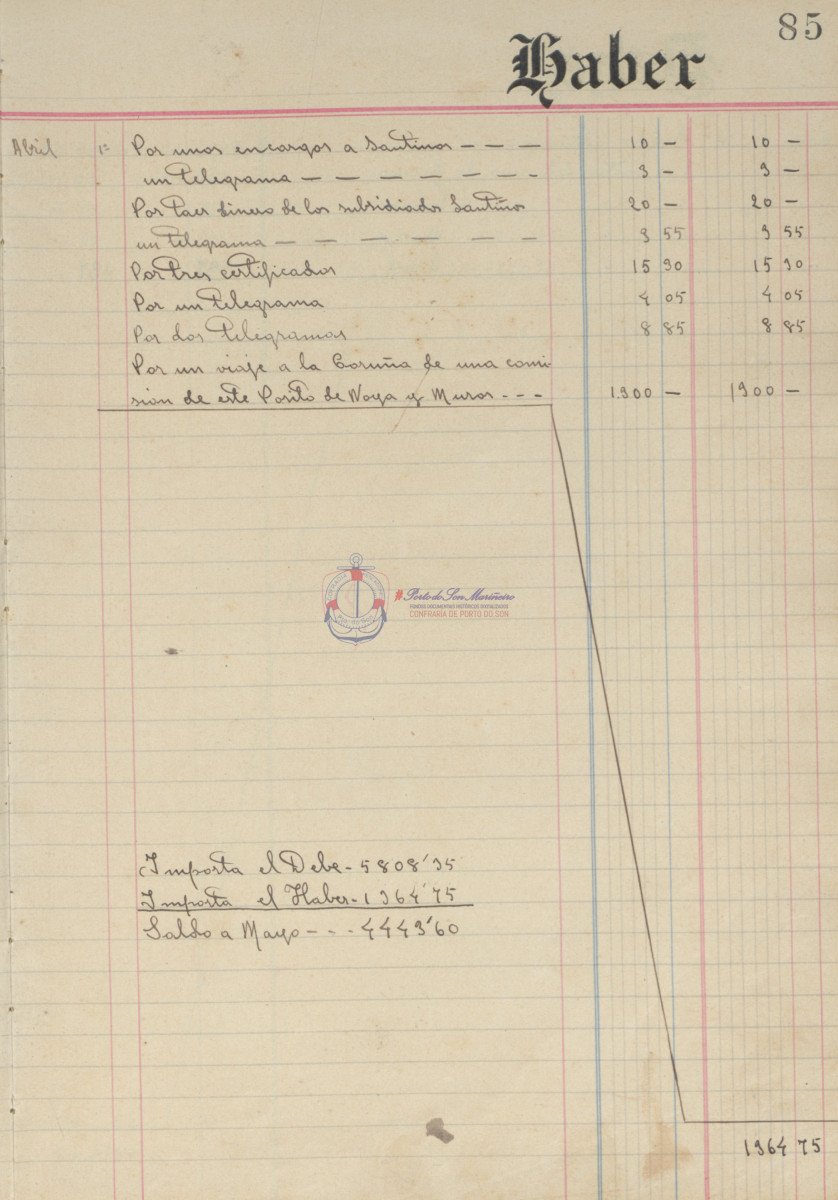 85
Haber
Abril 1º Por unos encargos a Santinos - - - 10 - 10 -
un telegrama - - - - - - - 3 - 3 -
Por traer dinero de los subsidiados Santiños 20 - 20 -
un telegrama - - - - - - 3 55 3 55
Por tres certificados 15 30 15 30
Por un telegrama 4 05 4 05
Por dos telegramas 8 85 8 85
Por un viaje a la Coruña de una comi-
sion de este Posito de Noya y Muros - - - 1.300 - 1300 -
#Porto do Son Mariñeiro
FONDOS DOCUMENTAIS HISTÓRICOS DIXITALIZADOS
CONFRARÍA DE PORTO DO SON
Importa el Debe - 5808'35
Importa el Haber - 1364'75
Saldo a Mayo - - - 4443'60
1364 75